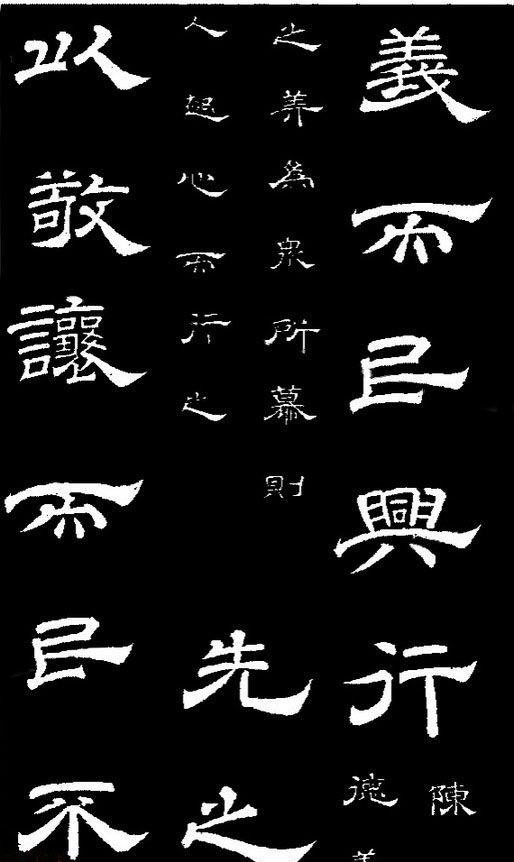 義而民興行
陳
德
之美為衆所慕則
人起心而行之
先之
以敬讓而民不